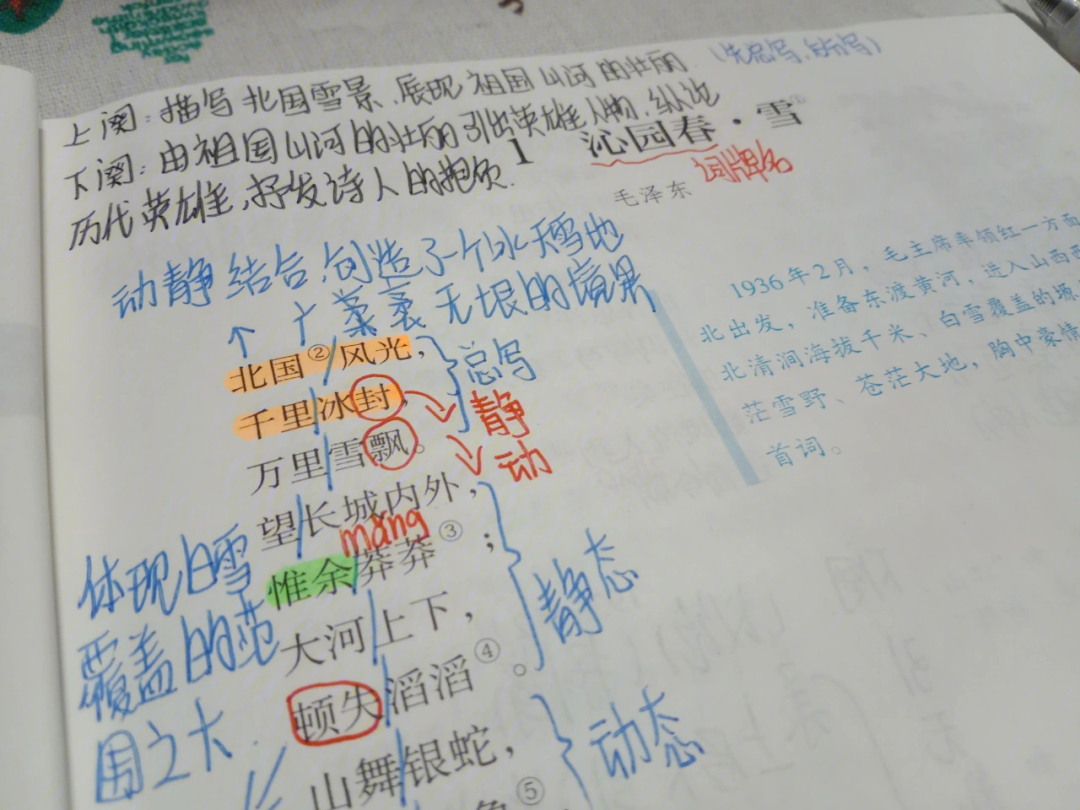 上阕：描写北国雪景、展现祖国山河的壮丽
下阕：由祖国山河的壮丽引出英雄人物，纵论
历代英雄，抒发诗人的抱负.
1 沁园春·雪
词牌名
毛泽东
动静结合，创造了一个冰天雪地
广袤无垠的境界
1936年2月，毛主席率领红一方面
北出发，准备东渡黄河，进入山西西
北清涧海拔千米、白雪覆盖的塬
茫雪野、苍茫大地，胸中豪情
首词。
北国②风光，
总写
千里冰封，
静
万里雪飘。
动
望长城内外，
mǎng
惟余莽莽③；
静态
大河上下，
顿失滔滔④。
山舞银蛇，
动态
⑤
体现白雪
覆盖的范
围之大